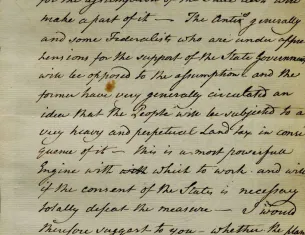 for the assumption of the State debts will
make a part of it — The Anties generally
and some Federalists who are under appre
hensions for the support of the State Governmen
will be opposed to the assumption - and the
former have very generally circulated an
idea that the People will be subjected to a
very heavy and perpetual Land tax in conse
quence of it — this is a most powerfull
Engine with which to work - and will
if the consent of the States is necessary
totally defeat the measure — I would
therefore suggest to you - whether the plan